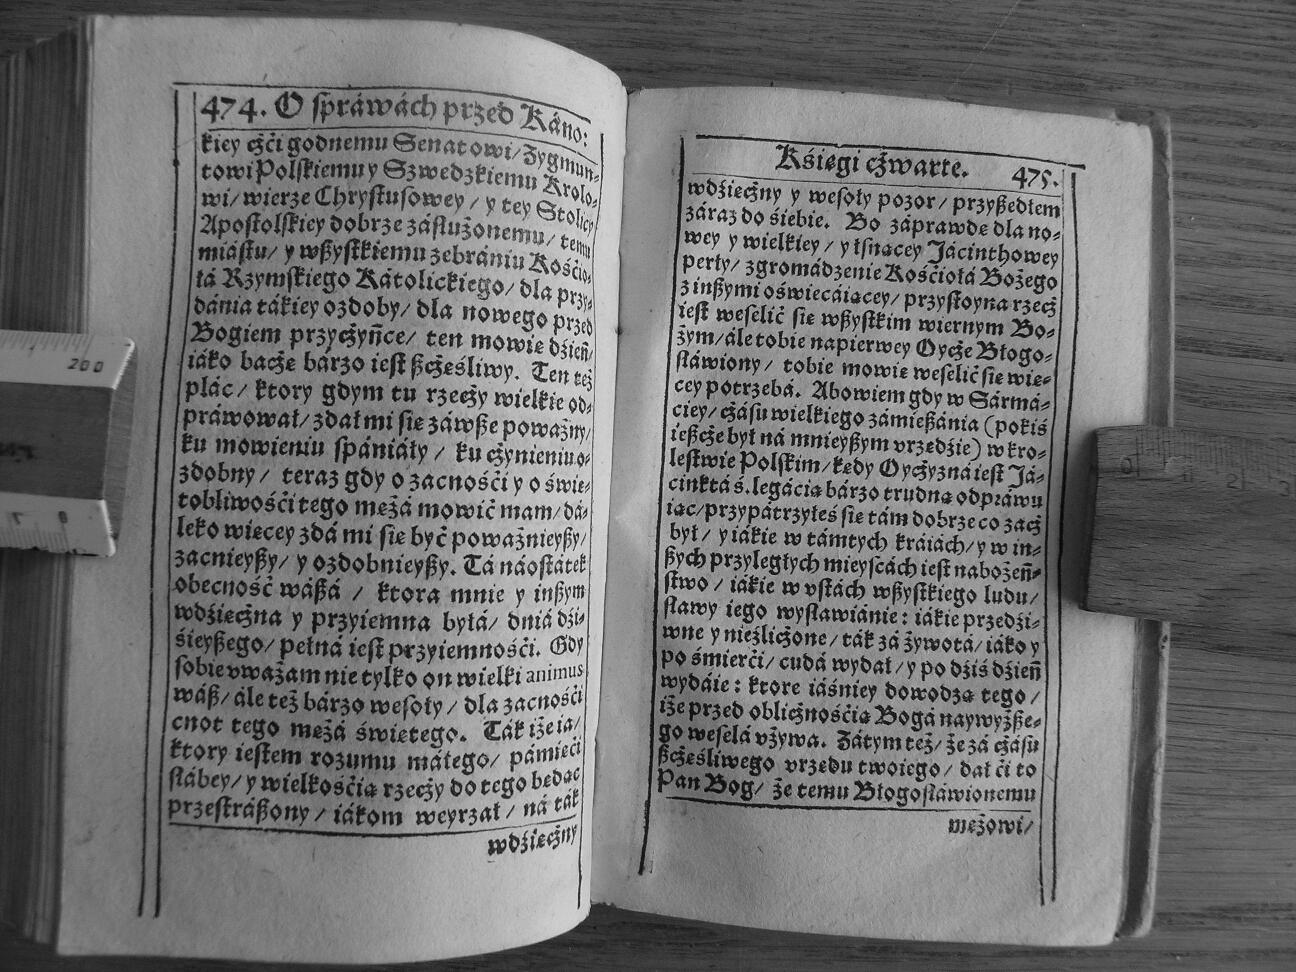 474. O spráwách przed Káno:
kiey cżći godnemu Senatowi/ Zygmun-
towi Polskiemu y Szwedzkiemu Krolo-
wi/ wierze Chrystusowey/ y tey Stolicy
Apostolskiey dobrze zásłużonemu/ temu
miástu/ y wßystkiemu zebrániu Kośćio-
łá Rzymskiego Kátolickiego/ dla przy-
dánia tákiey ozdoby/ dla nowego przed
Bogiem przycżyńce/ ten mowię dźień/
iáko bacżę bárzo iest ßcżęśliwy. Ten też
plác/ ktory gdym tu rzecży wielkie od-
práwował/ zdał mi się záwße poważny/
ku mowieniu spániáły/ ku cżynieniu o-
zdobny/ teraz gdy o zacnośći y o świę-
tobliwośći tego mężá mowić mam/ dá-
leko więcey zdá mi się być poważnieyßy/
zacnieyßy/ y ozdobnieyßy. Tá náostátek
obecność wáßá/ ktora mnie y inßym
wdźięcżna y przyiemna byłá/ dniá dźi-
śieyßego/ pełná iest przyiemnośći. Gdy
sobie vważam nie tylko on wielki animus
wáß/ ále też bárzo wesoły/ dla zacnośći
cnot tego mężá świętego. Ták iże ia/
ktory iestem rozumu máłego/ pámięći
słábey/ y wielkośćią rzecży do tego będąc
przestráßony/ iákom weyrzał/ ná ták
wdźięcżny
Kśięgi cżwarte. 475.
wdźięcżny y wesoły pozor/ przyßedłem
záraz do śiebie. Bo záprawdę dla no-
wey y wielkiey/ y łsnącey Jácinthowey
perły/ zgromádzenie Kośćiołá Bożego
z inßymi oświecáiącey/ przystoyna rzecż
iest weselić się wßystkim wiernym Bo-
żym/ ále tobie napierwey Oycże Błogo-
słáwiony/ tobie mowię weselić się wię-
cey potrzebá. Abowiem gdy w Sármá-
ciey/ cżásu wielkiego zámießánia (pokiś
ießcże był ná mnieyßym vrzędźie) w kro-
lestwie Polskim/ kędy Oycżyzná iest Já-
cinktá ś. legácią bárzo trudną odpráwu
iąc/ przypátrzyłeś się tám dobrze co zacż
był/ y iákie w támtych kráiách/ y w in-
ßych przyległych mieyscách iest nabożeń-
stwo/ iákie w vstách wßystkiego ludu/
sławy iego wysławiánie: iákie przedźi-
wne y niezlicżone/ ták zá żywotá/ iáko y
po śmierći/ cudá wydał/ y po dźiś dźień
wydáie: ktore iáśniey dowodzą tego/
iże przed oblicżnośćią Bogá naywyżße-
go weselá vżywa. Zátym też/ że zá cżásu
ßcżęśliwego vrzędu twoiego/ dał ći to
Pan Bog/ że temu Błogosłáwionemu
mężowi/